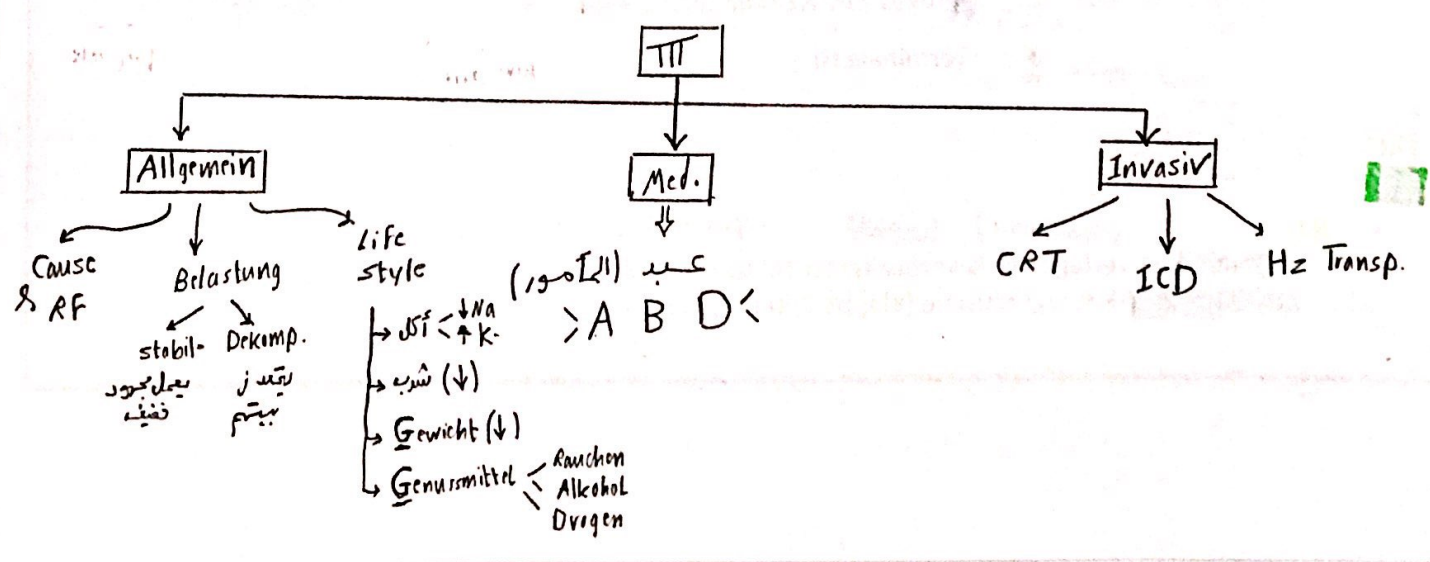 TTT
Allgemein
Med.
Invasiv
Cause
& RF
Belastung
stabil-
يعمل مجهود
خفيف
Dekomp.
Life
style
أكل
↓Na
↑K-
شرب (↓)
Gewicht (↓)
Genussmittel
Rauchen
Alkohol
Drogen
عبد (المأمور)
>A B D<
CRT
ICD
Hz Transp.